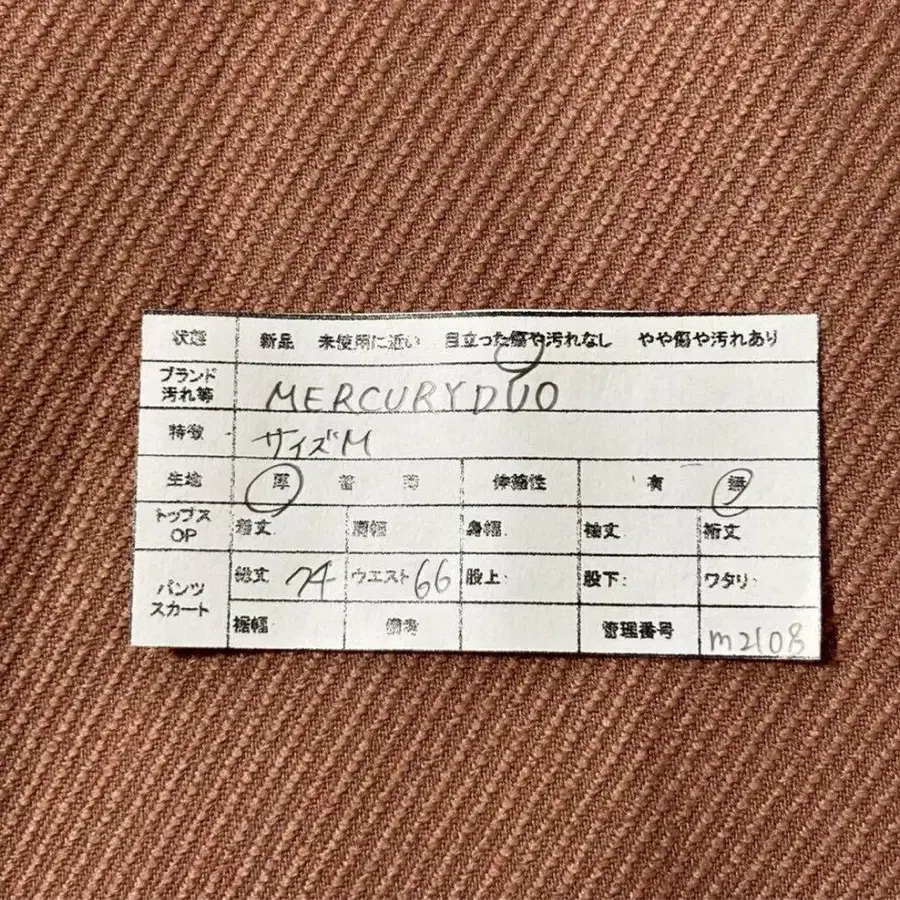 状態 新品 未使用に近い 目立った傷や汚れなし やや傷や汚れあり
ブランド
汚れ等 MERCURYDUO
特徴 サイズM
生地 厚 普 薄 伸縮性 有 無
トップス
OP 着丈 肩幅 身幅 袖丈 裄丈
パンツ
スカート 総丈 74 ウエスト 66 股上: 股下: ワタリ:
裾幅 備考 管理番号 m2108